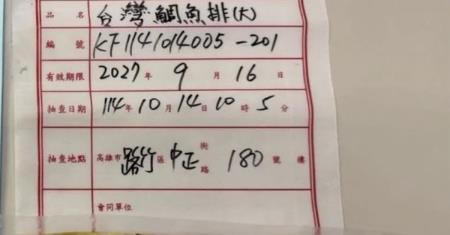 品名 台灣鯛魚排(大)
編號 KF1141014005-201
有效期限 2027年9月16日
抽查日期 114年10月14日10時5分
抽查地點 高雄市路竹區中正街路180號樓
會同單位